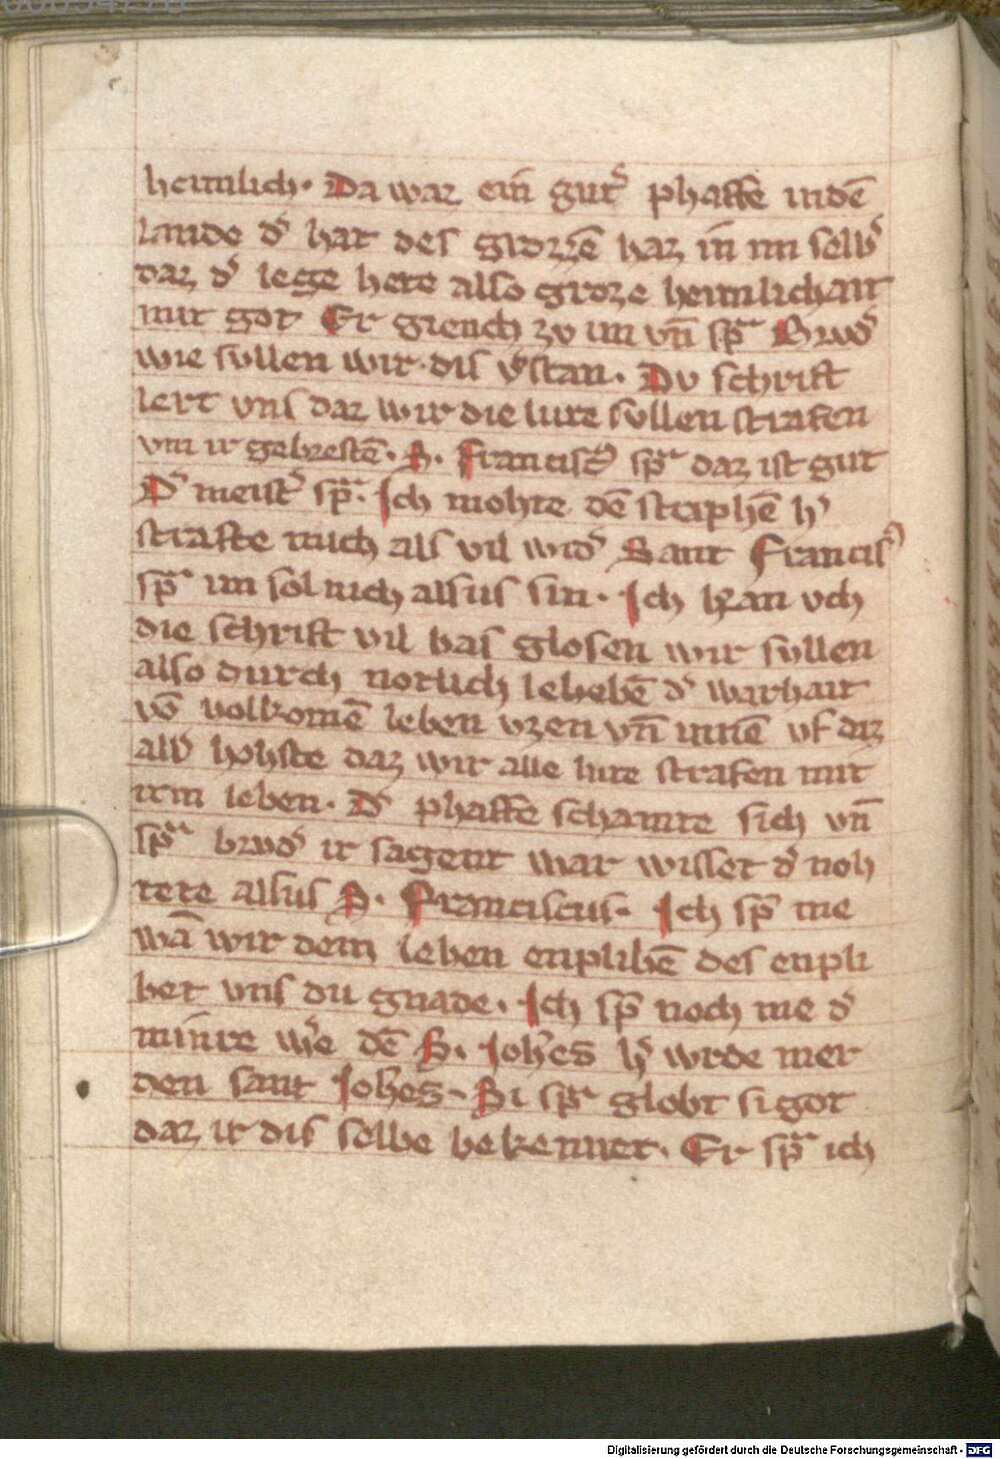 heimlich. Da waz ein gut᷑ phaffe indē
lande d᷑ hat des grozzē haz in im selb᷑
daz d᷑ lege hete also groze heimlichait
mit got Er giench zv im vn̄ spᷓ Brud᷑
wie svllen wir dis v᷑stan. Dv schrift
lert vns daz wir die lute svllen strafen
vm ir gebrestē. S. Francisc᷑ spᷓ daz ist gut
D᷑ meist᷑ spᷓ. Ich mohte dē
strafte mich als vil wid᷑ Sant Francis᷑
spᷓ im sol nich alsus sin. Ich kan vch
die schrift vil bas glosen wir svllen
also durch notlich lehebē d᷑ warhait
vō volkomē leben vzen vn̄ innē vf daz
all᷑ hohste daz wir alle lute strafen mit
irm leben. D᷑ phaffe schamte sich vn̄
spᷓ brud᷑ ir sagent war wisset d᷑ noh
rete alsus S. Franciscus. Ich sp̄ me
wā wir dem leben enplibē des enpli
bet vns du gnade. Ich sp̄ noch me d᷑
minre w᷑e dē S. Joh̄es h᷑ wrde mer
den sant Joh̄es. Si spᷓ globt si got
daz ir dis selbe bekennet. Er spᷓ ich
Digitalisierung gefördert durch die Deutsche Forschungsgemeinschaft - DFG